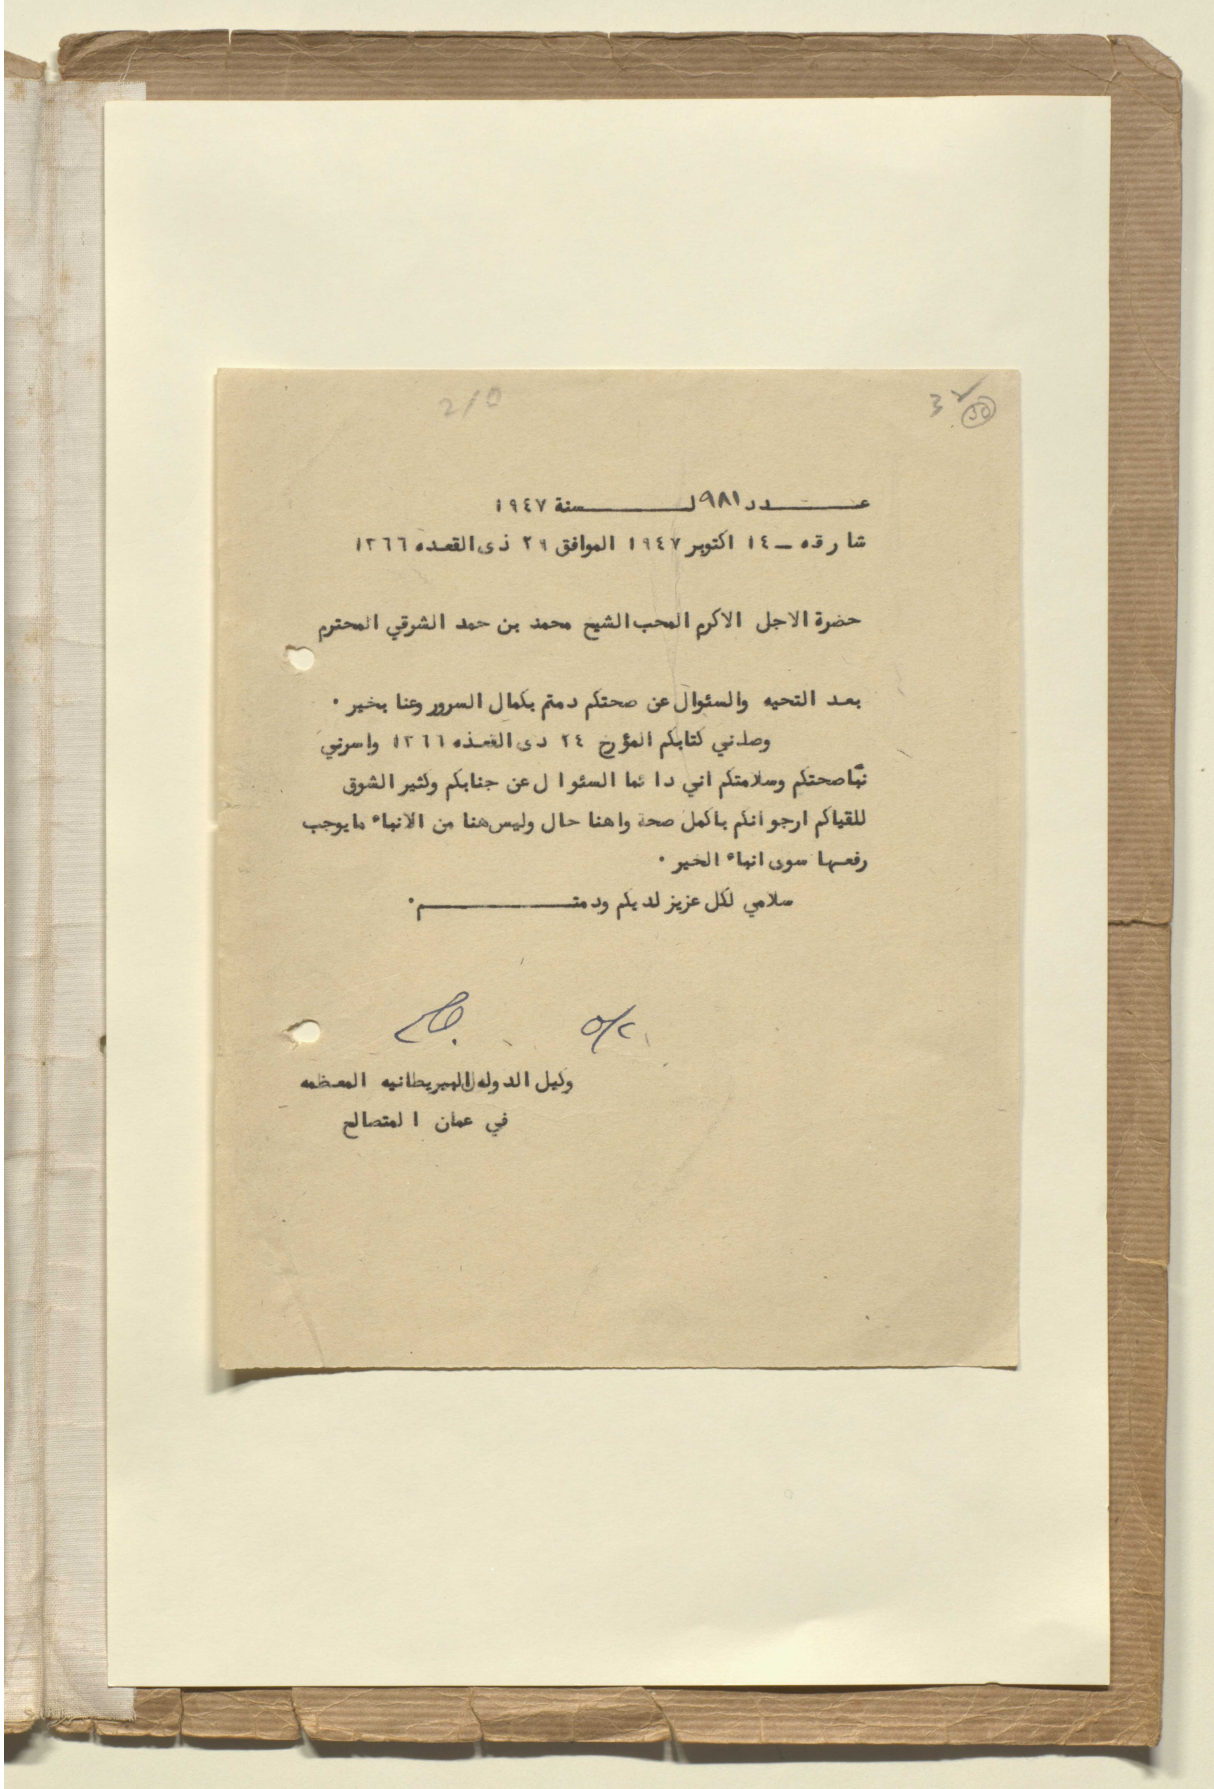 2/0
3
50
عـــــدد ٩٨١ لــــــسنة ١٩٤٧
شارقه ــ ١٤ اكتوبر ١٩٤٧ الموافق ٢٩ ذى القعده ١٣٦٦
حضرة الاجل الاكرم المحب الشيخ محمد بن حمد الشرقي المحترم
بعد التحيه والسئوال عن صحتكم دمتم بكمال السرور وعنا بخير ٠
وصلني كتابكم المؤرخ ٢٤ ذى القعده ١٣٦٦ واسرني
نبأ صحتكم وسلامتكم اني دائما السئوال عن جنابكم وكثير الشوق
للقياكم ارجو انكم باكمل صحة واهنا حال وليس هنا من الانباء مايوجب
رفعـها سوى انباء الخير ٠
سلامي لكل عزيز لديكم ودمتــــــــــم٠
o/c
وكيل الدوله البريطانيه المعظمه
في عمان المتصالح